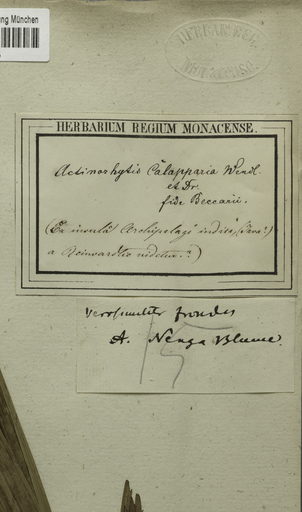 ung München
HERBARIUM
MONACENSE
HERBARIUM REGIUM MONACENSE.
Actinorhytis Calapparia Wendl.
et Dr.
fide Beccarii.
(Ex insulâ Archipelagi indici, (Java?)
a Reinwardtio videtur.?)
Verosimiliter frondes
A. Nenga Blume.